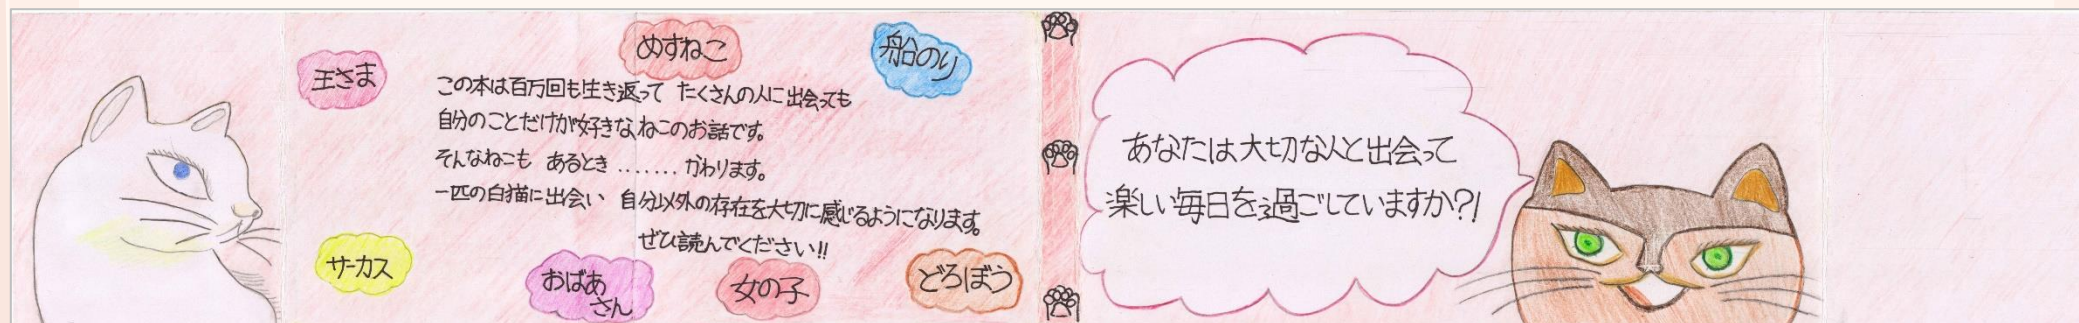 王さま
めすねこ
船のり
この本は百万回も生き返って たくさんの人に出会っても
自分のことだけが好きなねこのお話です。
そんなねこも あるとき ‥‥‥‥ かわります。
一匹の白猫に出会い 自分以外の存在を大切に感じるようになります。
ぜひ読んでください!!
サーカス
おばあ
さん
女の子
どろぼう
あなたは大切な人と出会って
楽しい毎日を過ごしていますか?!